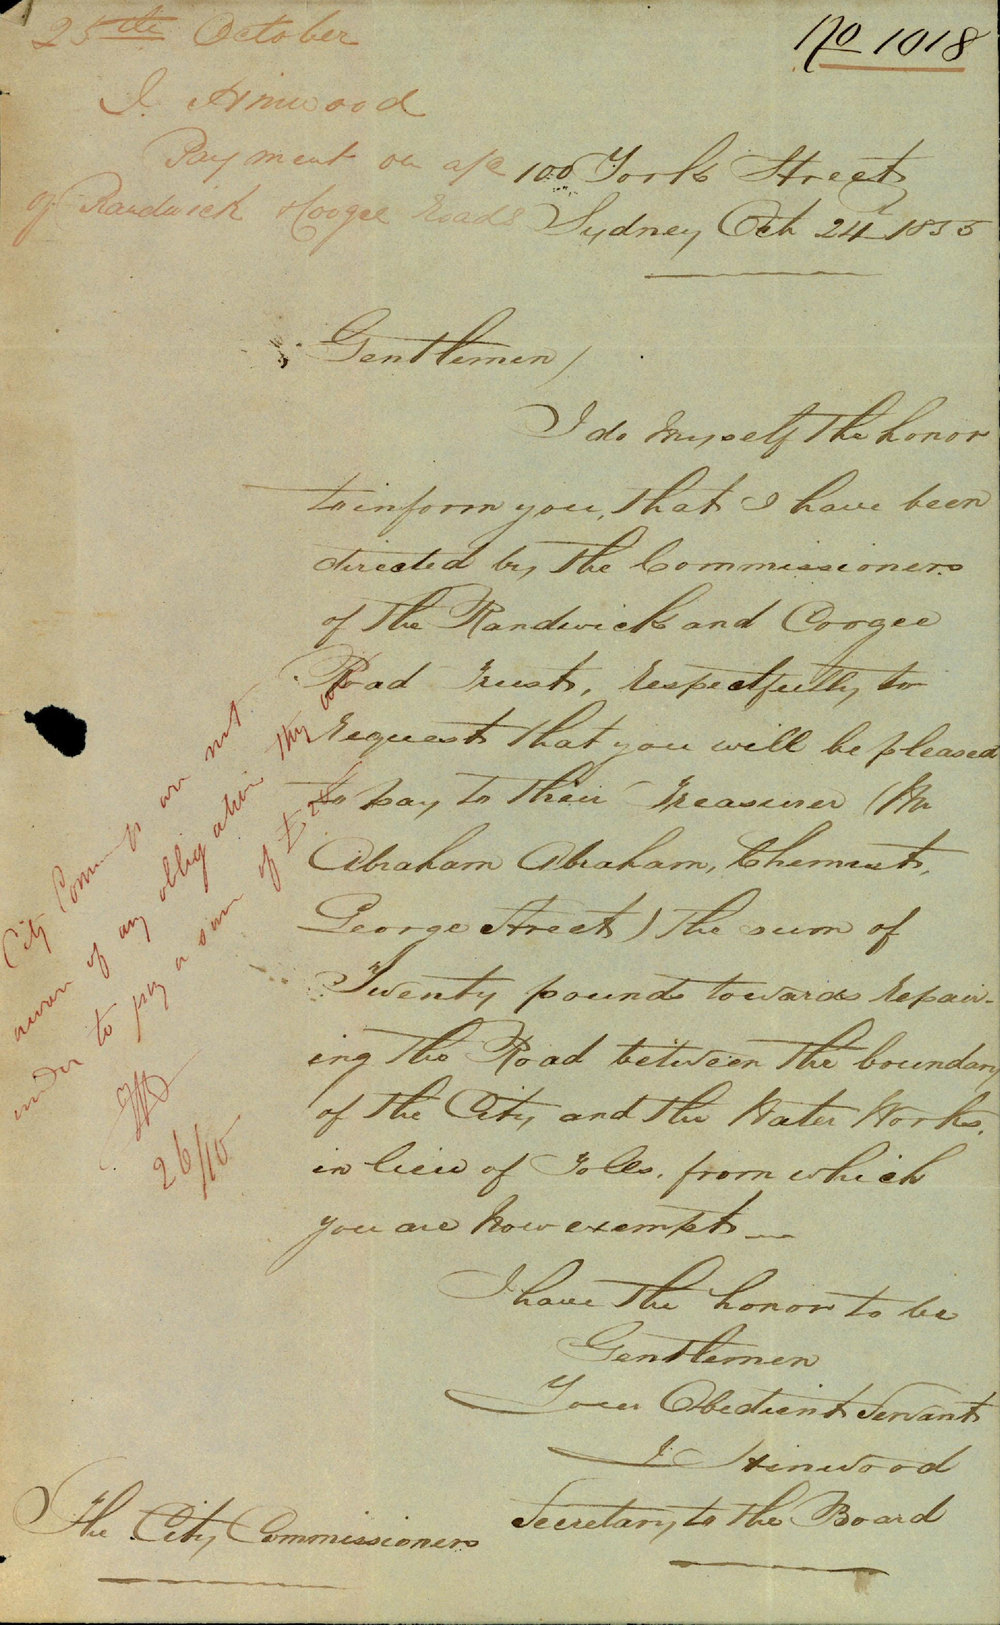 25th October
No 1018
J. Hinwood
Payment on a/c
of Randwick & Coogee Roads
100 York Street
Sydney Oct 24 1855
Gentlemen,
I do Myself the honor
to inform you, that I have been
directed by the Commissioners
of the Randwick and Coogee
Road Trust, respectfully to
request that you will be pleased
to pay to their Treasurer (Mr
Abraham Abraham, Chemist,
George Street) the sum of
Twenty pounds towards repair-
ing the Road between the boundary
of the City and the Water Works.
in lieu of Tolls. from which
you are now exempt
I have the honor to be
Gentlemen
Your Obedient Servant
J Hinwood
Secretary to the Board
The City Commissioners
City Comm are not
aware of any obligation they
under to pay a sum of £20
26/10